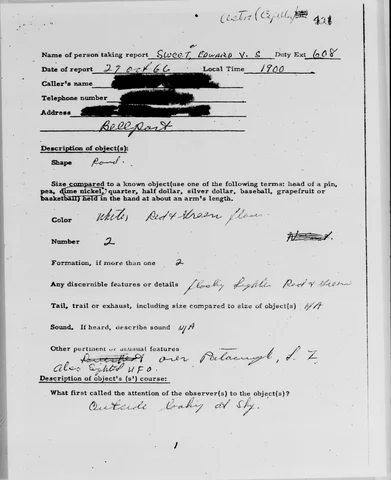 Astro (Capella) 421
Name of person taking report Sweet, Edward V. S Duty Ext 608
Date of report 27 Oct 66 Local Time 1900
Caller's name
Telephone number
Address
Bellport
Description of object(s):
Shape Round.
Size compared to a known object(use one of the following terms: head of a pin,
pea, dime nickel, quarter, half dollar, silver dollar, baseball, grapefruit or
basketball) held in the hand at about an arm's length.
Color White, Red & Green
Number 2
Formation, if more than one 2
Any discernible features or details flashing lights Red & Green
Tail, trail or exhaust, including size compared to size of object(s) N/A
Sound. If heard, describe sound N/A
Other pertinent or unusual features
over Patchogue, L. I.
Also sighted U.F.O.
Description of object's (s') course:
What first called the attention of the observer(s) to the object(s)?
Outside looking at Sky.
1